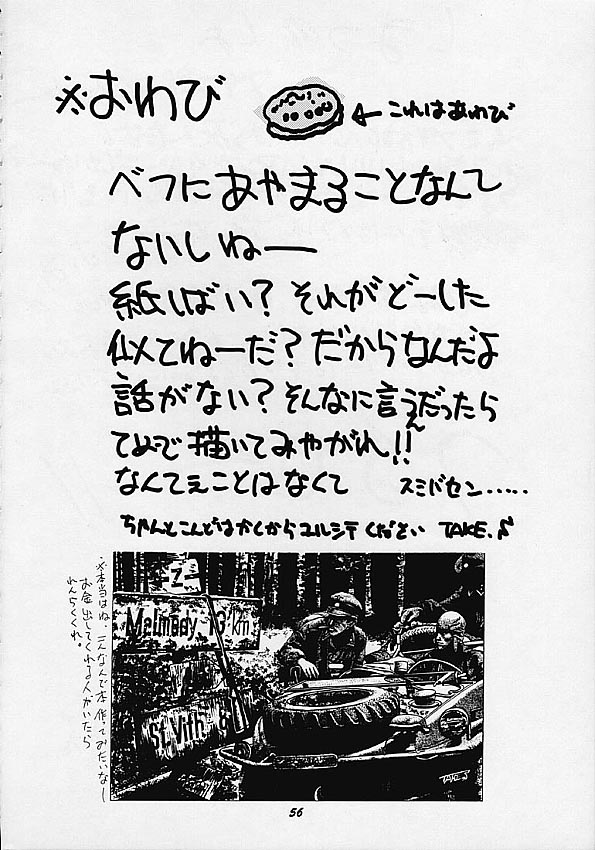 ※おわび
←これはあわび
ベフにあやまることなんて
ないしねー
紙しばい？それがどーした
似てねーだ？だからなんだよ
話がない？そんなに言うんだったら
てめーで描いてみやがれ!!
なんてぇことはなくて スミバセン……
ちゃんとこんどはかくからユルシテください TAKE.♪
※本当はね、こんなんで本作ってみたいなー
お金出してくれる人がいたら
れんらくくれ。
Z
Malmedy 13 km
St.Vith 8
TAKE.♪
56